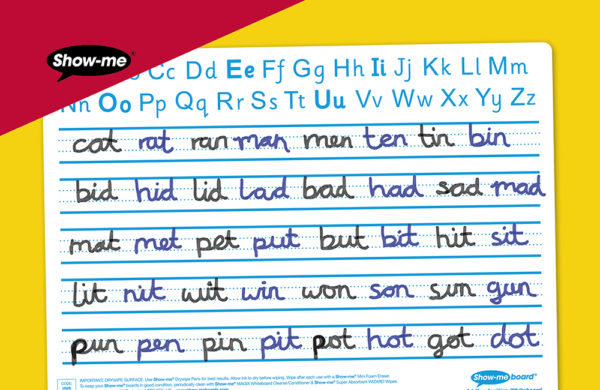 Show-me®
Cc Dd Ee Ff Gg Hh Ii Jj Kk Ll Mm
Nn Oo Pp Qq Rr Ss Tt Uu Vv Ww Xx Yy Zz
cat rat ran man men ten tin bin
bid hid lid lad bad had sad mad
mat met pet put but bit hit sit
lit nit wit win won son sun gun
pun pen pin pit pot hot got dot
IMPORTANT: DRYWIPE SURFACE. Use Show-me® Drywipe Pens for best results. Allow ink to dry before wiping. Wipe after each use with a Show-me® Mini Foam Eraser.
To keep your Show-me® boards in good condition, periodically clean with Show-me® MAGIX Whiteboard Cleaner/Conditioner & Show-me® Super Absorbent Wipes.
CODE
Show-me board®